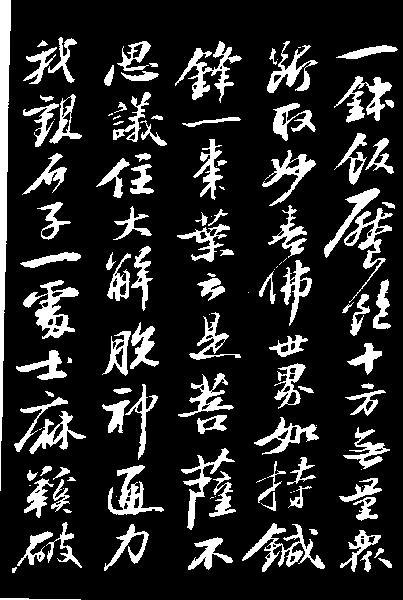 一鉢飯饜飽十方無量衆
斷取妙喜佛世界如持鍼
鋒一棗葉云是菩薩不
思議住大解脫神通力
我觀石子一處士麻鞵破